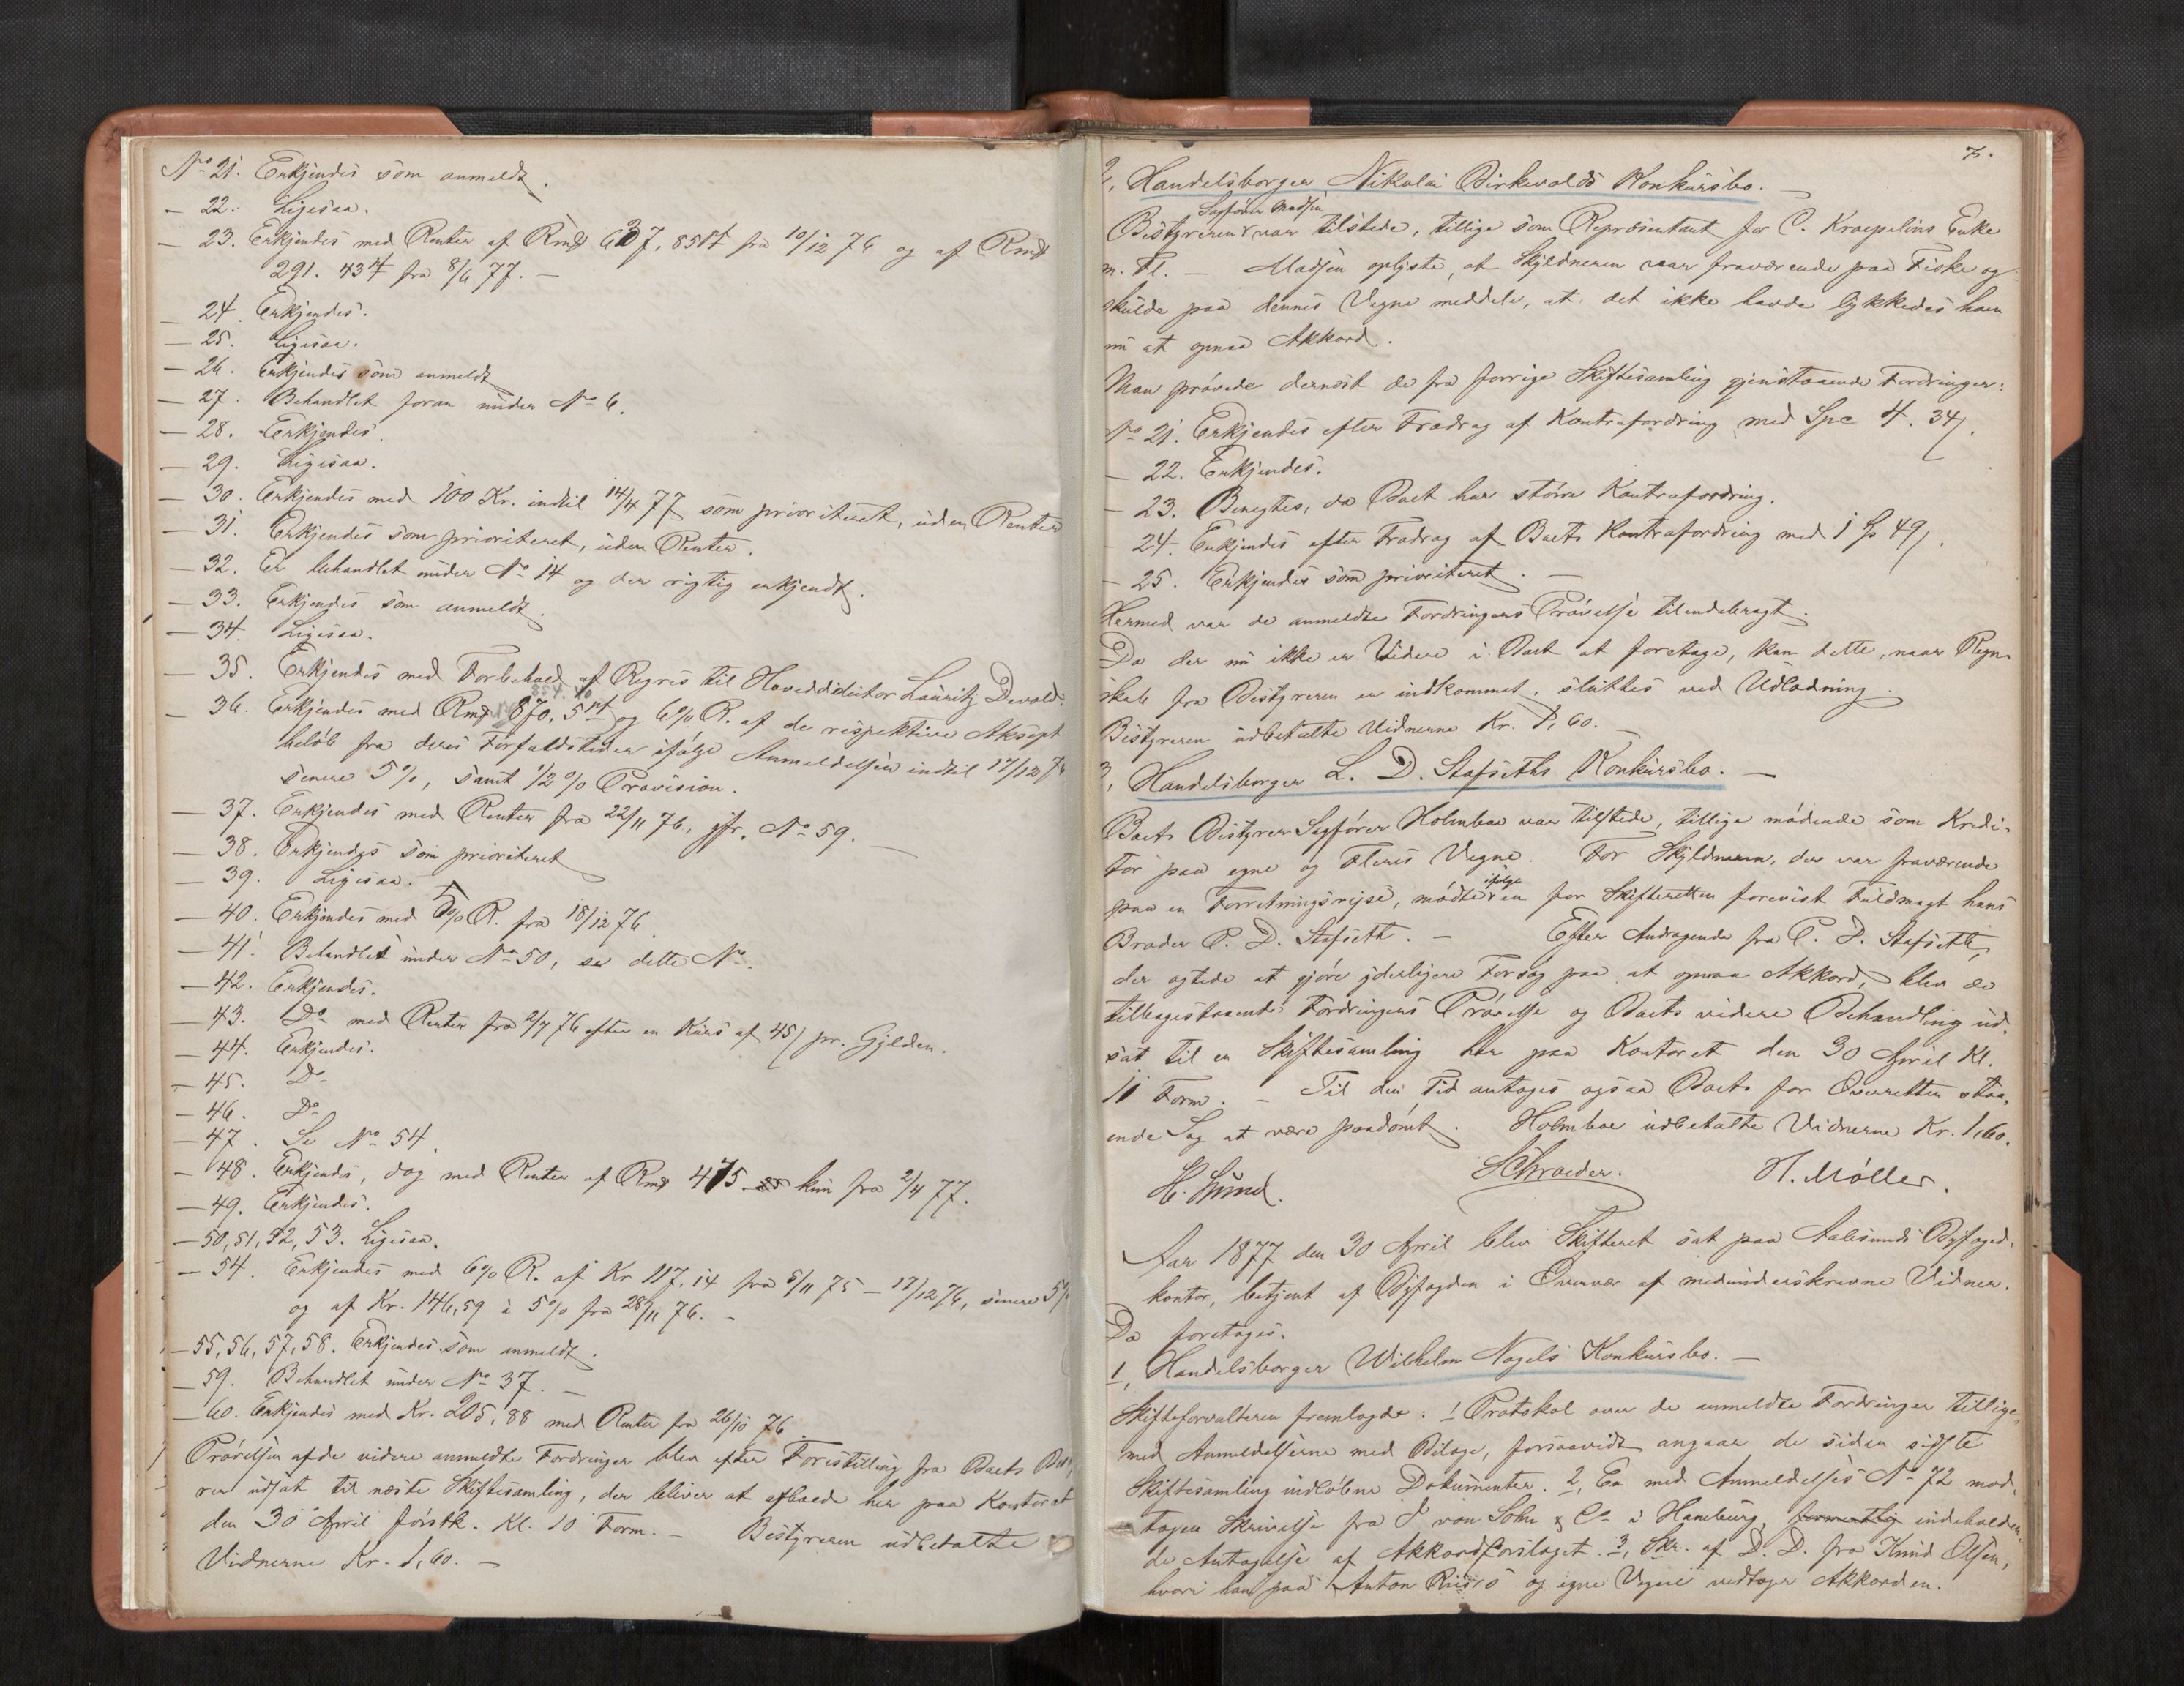 No 21. Erkjendes som anmeldt.
— 22. Ligesaa.
— 23. Erkjendes med Renter af Rmk 637, 85 pf fra 10/12 76 og af Rmk
291. 43 pf fra 8/6 77. —
— 24. Erkjendes.
— 25. Ligesaa.
— 26. Erkjendes som anmeldt
— 27. Behandlet foran under No 6.
— 28. Erkjendes.
— 29. Ligesaa.
— 30. Erkjendes med 100 Kr. indtil 14/4 77 som prioriteret, uden Renter
— 31. Erkjendes som prioriteret, uden Renter.
— 32. Er behandlet under No 14 og der rigtig erkjendt.
— 33. Erkjendes som anmeldt.
— 34. Ligesaa.
— 35. Erkjendes med Forbehold af Regres til Hoveddebitor Lauritz Devold.
— 36. Erkjendes med Rmk 870, 5 pf og 6% R. af de respektive Aksept
beløb fra deres Forfaldstider ifølge Anmeldelsen indtil 17/12 76
senere 5%, samt 1/2% Provision.
— 37. Erkjendes med Renter fra 22/11 76, jfr. No 59. —
— 38. Erkjendes som prioriteret
— 39. Ligesaa.
— 40. Erkjendes med 5% R. fra 18/12 76.
— 41. Behandlet under No 50, se dette No.
— 42. Erkjendes.
— 43. Do med Renter fra 2/7 76 efter en Kurs af 45 ß pr. Gylden.
— 44. Erkjendes.
— 45. Do
— 46. Do
— 47. Se No 54.
— 48. Erkjendes, dog med Renter af Rmk 475. kun fra 2/4 77.
— 49. Erkjendes.
— 50, 51, 52, 53. Ligesaa.
— 54. Erkjendes med 6% R. af Kr 117.14 fra 5/11 75 – 17/12 76, senere 5%
og af Kr. 146,59 à 5% fra 28/11 76. —
— 55, 56, 57, 58. Erkjendes som anmeldt.
— 59. Behandlet under No 37. —
— 60. Erkjendes med Kr. 205, 88 med Renter fra 26/10 76.
Prøvelsen af de videre anmeldte Fordringer blev efter Forestilling fra Boets Besty-
rer udsat til næste Skiftesamling, der bliver at afholde her paa Kontoret
den 30 April førstk. Kl. 10 Form. — Bestyreren udbetalte
Vidnerne Kr. 1,60. —
7.
2, Handelsborger Nikolai Birkevolds Konkursbo. —
Sagfører Madsen
Bestyreren var tilstede, tillige som Repræsentant for C. Kraepelins Enke
m. Fl. — Madsen oplyste, at Skyldneren var fraværende paa Fiske og
skulde paa dennes Vegne meddele, at det ikke havde lykkedes ham
nu at opnaa Akkord.
Man prøvede dernæst de fra forrige Skiftesamling gjenstaaende Fordringer:
No 21. Erkjendes efter Fradrag af Kontrafordring med Spc 4. 34 ß.
— 22. Erkjendes.
— 23. Benegtes, da Boet har større Kontrafordring.
— 24. Erkjendes efter Fradrag af Boets Kontrafordring med 1 Sp 49 ß.
— 25. Erkjendes som prioriteret. —
Hermed var de anmeldte Fordringers Prøvelse tilendebragt.
Da der nu ikke er Videre i Boet at foretage, kan dette, naar Regn-
skab fra Bestyreren er indkommet, sluttes ved Udlodning.
Bestyreren udbetalte Vidnerne Kr. 1,60. —
3, Handelsborger L. D. Stafseths Konkursbo. —
Boets Bestyrer Sagfører Holmboe var tilstede, tillige mødende som Kredi-
tor paa egne og Fleres Vegne. For Skyldneren, der var fraværende
ifølge
paa en Forretningsrejse, mødte en for Skifteretten forevist Fuldmagt hans
Broder P. D. Stafseth. — Efter Andragende fra P. D. Stafseth,
der agtede at gjøre yderligere Forsøg paa at opnaa Akkord, blev de
tilbagestaaende Fordringers Prøvelse og Boets videre Behandling ud-
sat til en Skiftesamling her paa Kontoret den 30 April Kl.
10 Form. — Til den Tid antages ogsaa Boets for Overretten staa-
ende Sag at være paadømt. Holmboe udbetalte Vidnerne Kr. 1,60.
H. Lund. Schroeder. H. Møller.
Aar 1877 den 30 April blev Skifteret sat paa Aalesunds Byfoged-
kontor, betjent af Byfogden i Overvær af medunderskrevne Vidner.
Da foretages.
1, Handelsborger Wilhelm Nagels Konkursbo. —
Skifteforvalteren fremlagde: 1, Protokol over de anmeldte Fordringer tillige-
med Anmeldelserne med Bilage, forsaavidt angaar de siden sidste
Skiftesamling indløbne Dokumenter. 2, En med Anmeldelses No 72 mod-
tagen Skrivelse fra J von Sohn & Co i Hamburg, formentlig indeholden-
de Antagelse af Akkordforslaget. 3, Skr. af D. D. fra Knud Olsen,
hvori han paa Anton Riises og egne Vegne vedtager Akkorden.